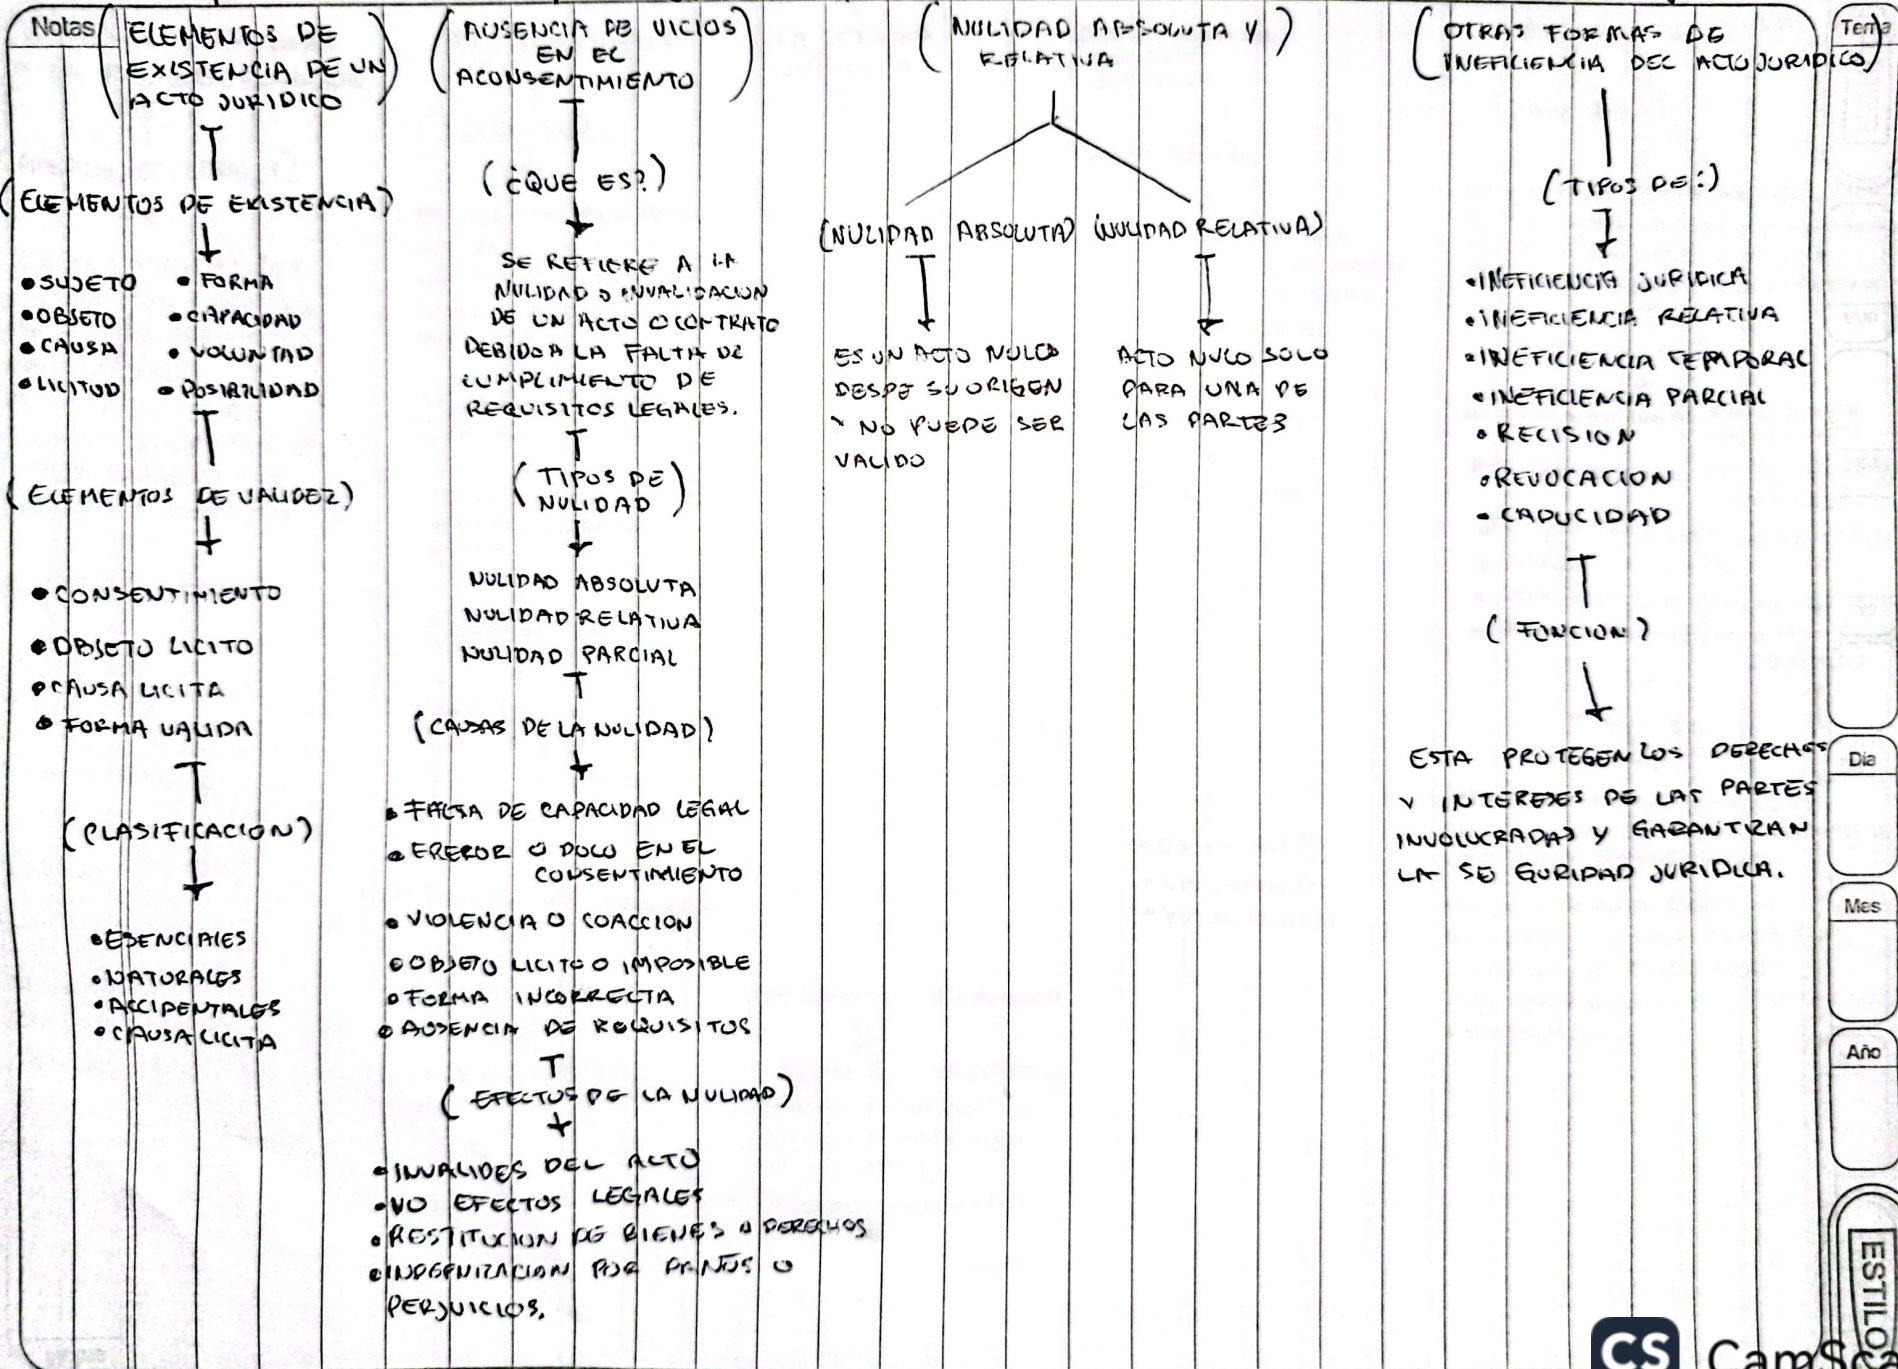 Notas
ELEMENTOS DE
EXISTENCIA DE UN
ACTO JURIDICO
(ELEMENTOS DE EXISTENCIA)
• SUJETO
• OBJETO
• CAUSA
• LICITUD
• FORMA
• CAPACIDAD
• VOLUNTAD
• POSIBILIDAD
(ELEMENTOS DE VALIDEZ)
• CONSENTIMIENTO
• OBJETO LICITO
• CAUSA LICITA
• FORMA VALIDA
(CLASIFICACION)
• ESENCIALES
• NATURALES
• ACCIDENTALES
• CAUSA LICITA
(AUSENCIA DE VICIOS
EN EL
ACONSENTIMIENTO)
(¿QUE ES?)
SE REFIERE A LA
NULIDAD O INVALIDACION
DE UN ACTO O CONTRATO
DEBIDO A LA FALTA DE
CUMPLIMIENTO DE
REQUISITOS LEGALES.
(TIPOS DE
NULIDAD)
NULIDAD ABSOLUTA
NULIDAD RELATIVA
NULIDAD PARCIAL
(CAUSAS DE LA NULIDAD)
• FALTA DE CAPACIDAD LEGAL
• EREROR O DOLO EN EL
CONSENTIMIENTO
• VIOLENCIA O COACCION
• OBJETO LICITO O IMPOSIBLE
• FORMA INCORRECTA
• AUSENCIA DE REQUISITOS
(EFECTOS DE LA NULIDAD)
• INVALIDES DEL ACTO
• NO EFECTOS LEGALES
• RESTITUCION DE BIENES O DERECHOS
• INDEMNIZACION POR DAÑOS O
PERJUICIOS.
(NULIDAD ABSOLUTA Y
RELATIVA)
(NULIDAD ABSOLUTA)
ES UN ACTO NULO
DESDE SU ORIGEN
Y NO PUEDE SER
VALIDO
(NULIDAD RELATIVA)
ACTO NULO SOLO
PARA UNA DE
LAS PARTES
(OTRAS FORMAS DE
INEFICIENCIA DEL ACTO JURIDICO)
(TIPOS DE:)
• INEFICIENCIA JURIDICA
• INEFICIENCIA RELATIVA
• INEFICIENCIA TEMPORAL
• INEFICIENCIA PARCIAL
• RECISION
• REVOCACION
• CADUCIDAD
(FUNCION)
ESTA PROTEGEN LOS DERECHOS
Y INTERESES DE LAS PARTES
INVOLUCRADAS Y GARANTIZAN
LA SEGURIDAD JURIDICA.
Tema
Día
Mes
Año
ESTILO
CS CamSca